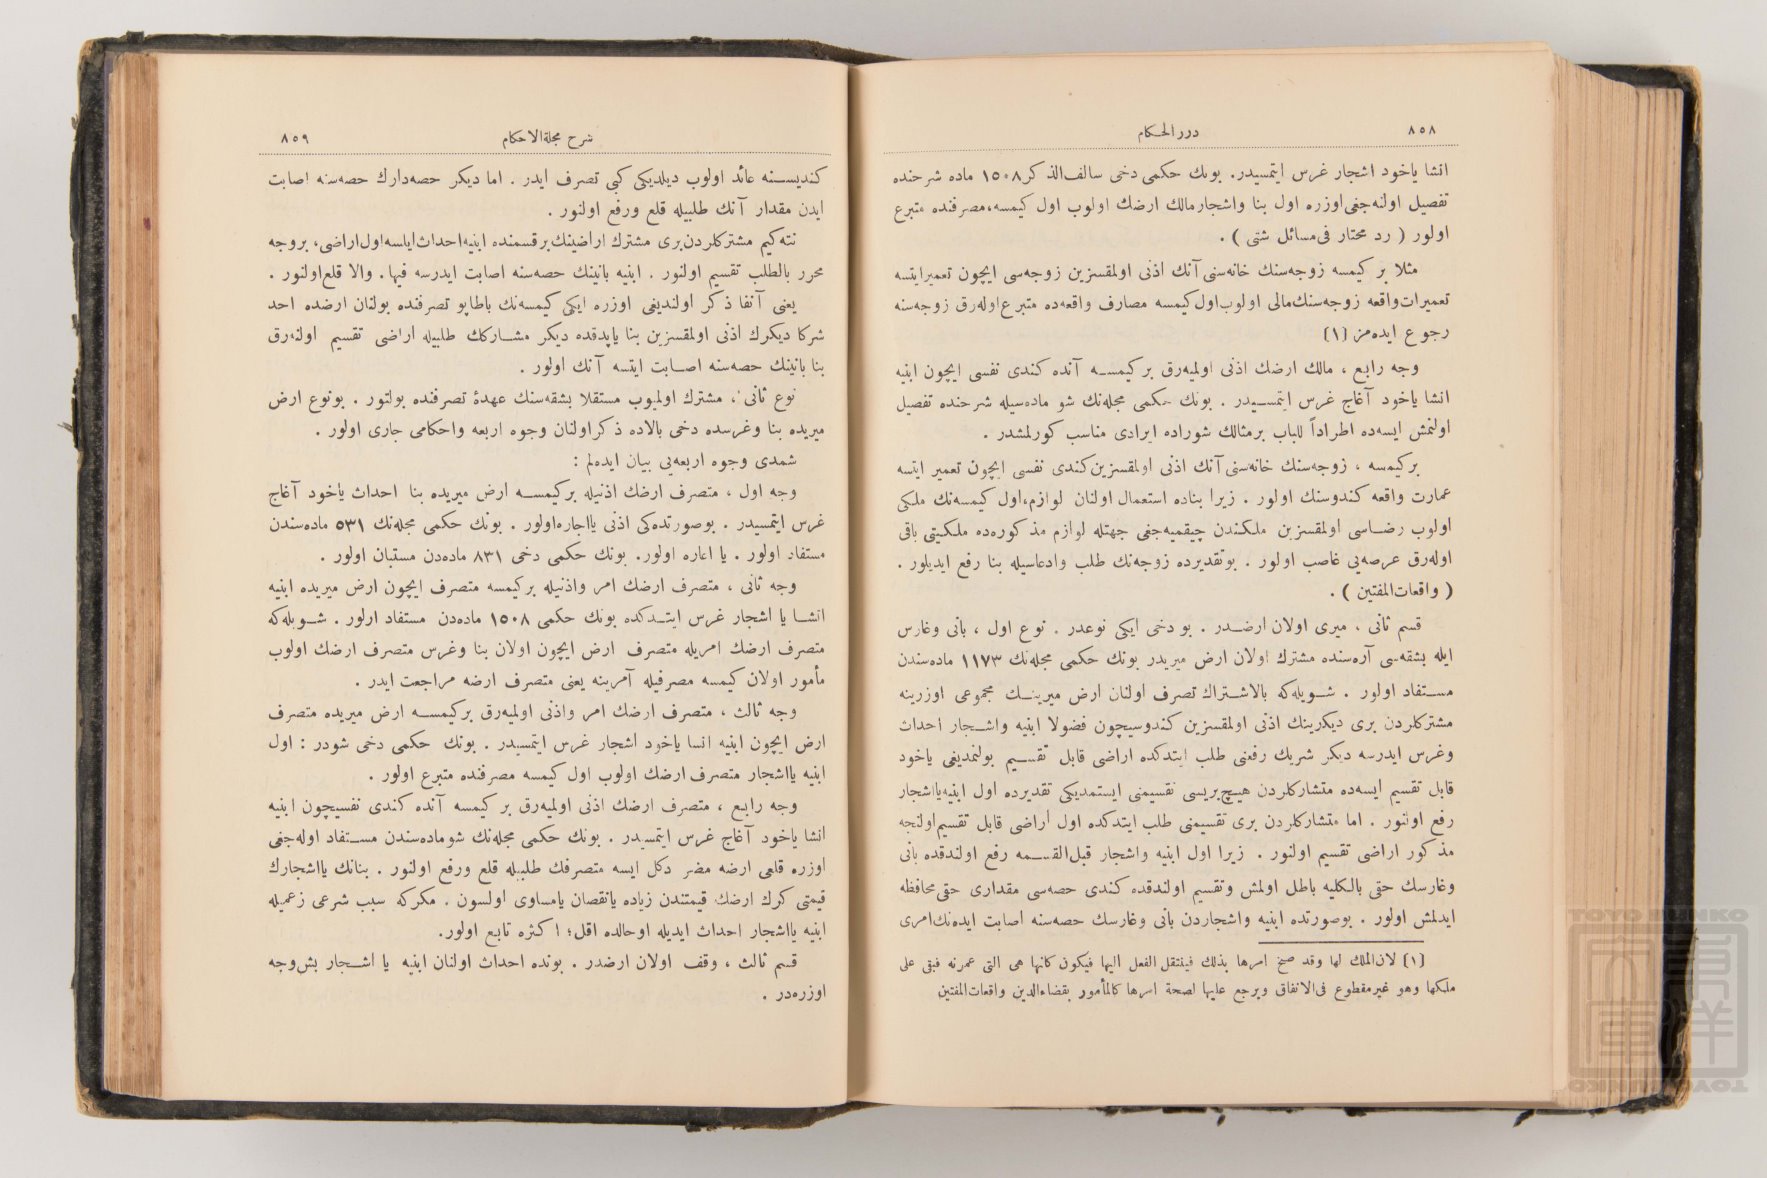 ٨٥٨
دررالحكام
انشا ياخود اشجار غرس ايتمسيدر. بونك حكمى دخى سالف‌الذكر ١٥٠٨ ماده شرحنده
تفصيل اولنه‌جغى اوزره اول بنا واشجار مالك ارضك اولوب اول كيمسه، مصرفنده متبرع
اولور ( رد محتار فى مسائل شتى ) .
مثلا بر كيمسه زوجه‌سنك خانه‌سنى آنك اذنى اولمقسزين زوجه‌سى ايچون تعميرايتسه
تعميرات واقعه زوجه‌سنك مالى اولوب اول كيمسه مصارف واقعه‌ده متبرع اوله‌رق زوجه‌سنه
رجوع ايده‌مز (١)
وجه رابع ، مالك ارضك اذنى اولميه‌رق بر كيمسه آنده كندى نفسى ايچون ابنيه
انشا ياخود آغاج غرس ايتمسيدر . بونك حكمى مجله‌نك شو ماده‌سيله شرحنده تفصيل
اولنمش ايسه‌ده اطراداً للباب برمثالك شوراده ايرادى مناسب كورلمشدر .
بركيمسه ، زوجه‌سنك خانه‌سنى آنك اذنى اولمقسزين كندى نفسى ايچون تعمير ايتسه
عمارت واقعه كندوسنك اولور . زيرا بناده استعمال اولنان لوازم، اول كيمسه‌نك ملكى
اولوب رضاسى اولمقسزين ملكندن چيقميه‌جغى جهتله لوازم مذكوره‌ده ملكيتى باقى
اوله‌رق عرصه‌يى غاصب اولور . بوتقديرده زوجه‌نك طلب وادعاسيله بنا رفع ايديلور .
( واقعات‌المفتين ) .
قسم ثانى ، ميرى اولان ارضدر . بو دخى ايكى نوعدر . نوع اول ، بانى وغارس
ايله بشقه‌سى آره‌سنده مشترك اولان ارض ميريدر بونك حكمى مجله‌نك ١١٧٣ ماده‌سندن
مستفاد اولور . شويله‌كه بالاشتراك تصرف اولنان ارض ميرينك مجموعى اوزرينه
مشتركلردن برى ديكرينك اذنى اولمقسزين كندوسيچون فضولا ابنيه واشجار احداث
وغرس ايدرسه ديكر شريك رفعنى طلب ايتدكده اراضى قابل تقسيم بولنمديغى ياخود
قابل تقسيم ايسه‌ده متشاركلردن هيچ‌بريسى تقسيمنى ايستمديكى تقديرده اول ابنيه يااشجار
رفع اولنور . اما متشاركلردن برى تقسيمنى طلب ايتدكده اول اراضى قابل تقسيم‌اولنجه
مذكور اراضى تقسيم اولنور . زيرا اول ابنيه واشجار قبل‌القسمه رفع اولندقده بانى
وغارسك حق بالكليه باطل اولمش وتقسيم اولندقده كندى حصه‌سى مقدارى حق محافظه
ايدلمش اولور . بوصورتده ابنيه واشجاردن بانى وغارسك حصه‌سنه اصابت ايده‌نك امرى
(١) لان‌الملك لها وقد صح امرها بذلك فينتقل الفعل اليها فيكون كانها هى التى عمرته فبقى على
ملكها وهو غيرمقطوع فى‌الانفاق ويرجع عليها لصحة امرها كالمأمور بقضاءالدين واقعات‌المفتين
شرح مجلةالاحكام
٨٥٩
كنديسنه عائد اولوب ديلديكى كبى تصرف ايدر . اما ديكر حصه‌دارك حصه‌سنه اصابت
ايدن مقدار آنك طلبيله قلع ورفع اولنور .
نته‌كيم مشتركلردن‌برى مشترك اراضينك برقسمنده ابنيه احداث‌ايلسه اول‌اراضى، بروجه
محرر بالطلب تقسيم اولنور . ابنيه بانينك حصه‌سنه اصابت ايدرسه فبها. والا قلع‌اولنور .
يعنى آنفا ذكر اولنديغى اوزره ايكى كيمسه‌نك باطاپو تصرفنده بولنان ارضده احد
شركا ديكرك اذنى اولمقسزين بنا ياپدقده ديكر مشاركك طلبيله اراضى تقسيم اولنه‌رق
بنا بانينك حصه‌سنه اصابت ايتسه آنك اولور .
نوع ثانى ، مشترك اولميوب مستقلا بشقه‌سنك عهدهٔ تصرفنده بولنور . بونوع ارض
ميريده بنا وغرسده دخى بالاده ذكر اولنان وجوه اربعه واحكامى جارى اولور .
شمدى وجوه اربعه‌يى بيان ايده‌لم :
وجه اول ، متصرف ارضك اذنيله بركيمسه ارض ميريده بنا احداث ياخود آغاج
غرس ايتمسيدر . بوصورتده‌كى اذنى يااجاره‌اولور . بونك حكمى مجله‌نك ٥٣١ ماده‌سندن
مستفاد اولور . يا اعاره اولور. بونك حكمى دخى ٨٣١ ماده‌دن مستبان اولور .
وجه ثانى ، متصرف ارضك امر واذنيله بركيمسه متصرف ايچون ارض ميريده ابنيه
انشا يا اشجار غرس ايتدكده بونك حكمى ١٥٠٨ ماده‌دن مستفاد اولور . شويله‌كه
متصرف ارضك امريله متصرف ارض ايچون اولان بنا وغرس متصرف ارضك اولوب
مأمور اولان كيمسه مصرفيله آمرينه يعنى متصرف ارضه مراجعت ايدر .
وجه ثالث ، متصرف ارضك امر واذنى اولميه‌رق بركيمسه ارض ميريده متصرف
ارض ايچون ابنيه انسا ياخود اشجار غرس ايتمسيدر . بونك حكمى دخى شودر : اول
ابنيه يااشجار متصرف ارضك اولوب اول كيمسه مصرفنده متبرع اولور .
وجه رابع ، متصرف ارضك اذنى اولميه‌رق بر كيمسه آنده كندى نفسيچون ابنيه
انشا ياخود آغاج غرس ايتمسيدر . بونك حكمى مجله‌نك شوماده‌سندن مستفاد اوله‌جغى
اوزره قلعى ارضه مضر دكل ايسه متصرفك طلبيله قلع ورفع اولنور . بنانك يااشجارك
قيمتى كرك ارضك قيمتندن زياده يانقصان يامساوى اولسون . مكركه سبب شرعى زعميله
ابنيه يااشجار احداث ايديله اوحالده اقل؛ اكثره تابع اولور.
قسم ثالث ، وقف اولان ارضدر . بونده احداث اولنان ابنيه يا اشجار بش‌وجه
اوزره‌در .
TOYO BUNKO